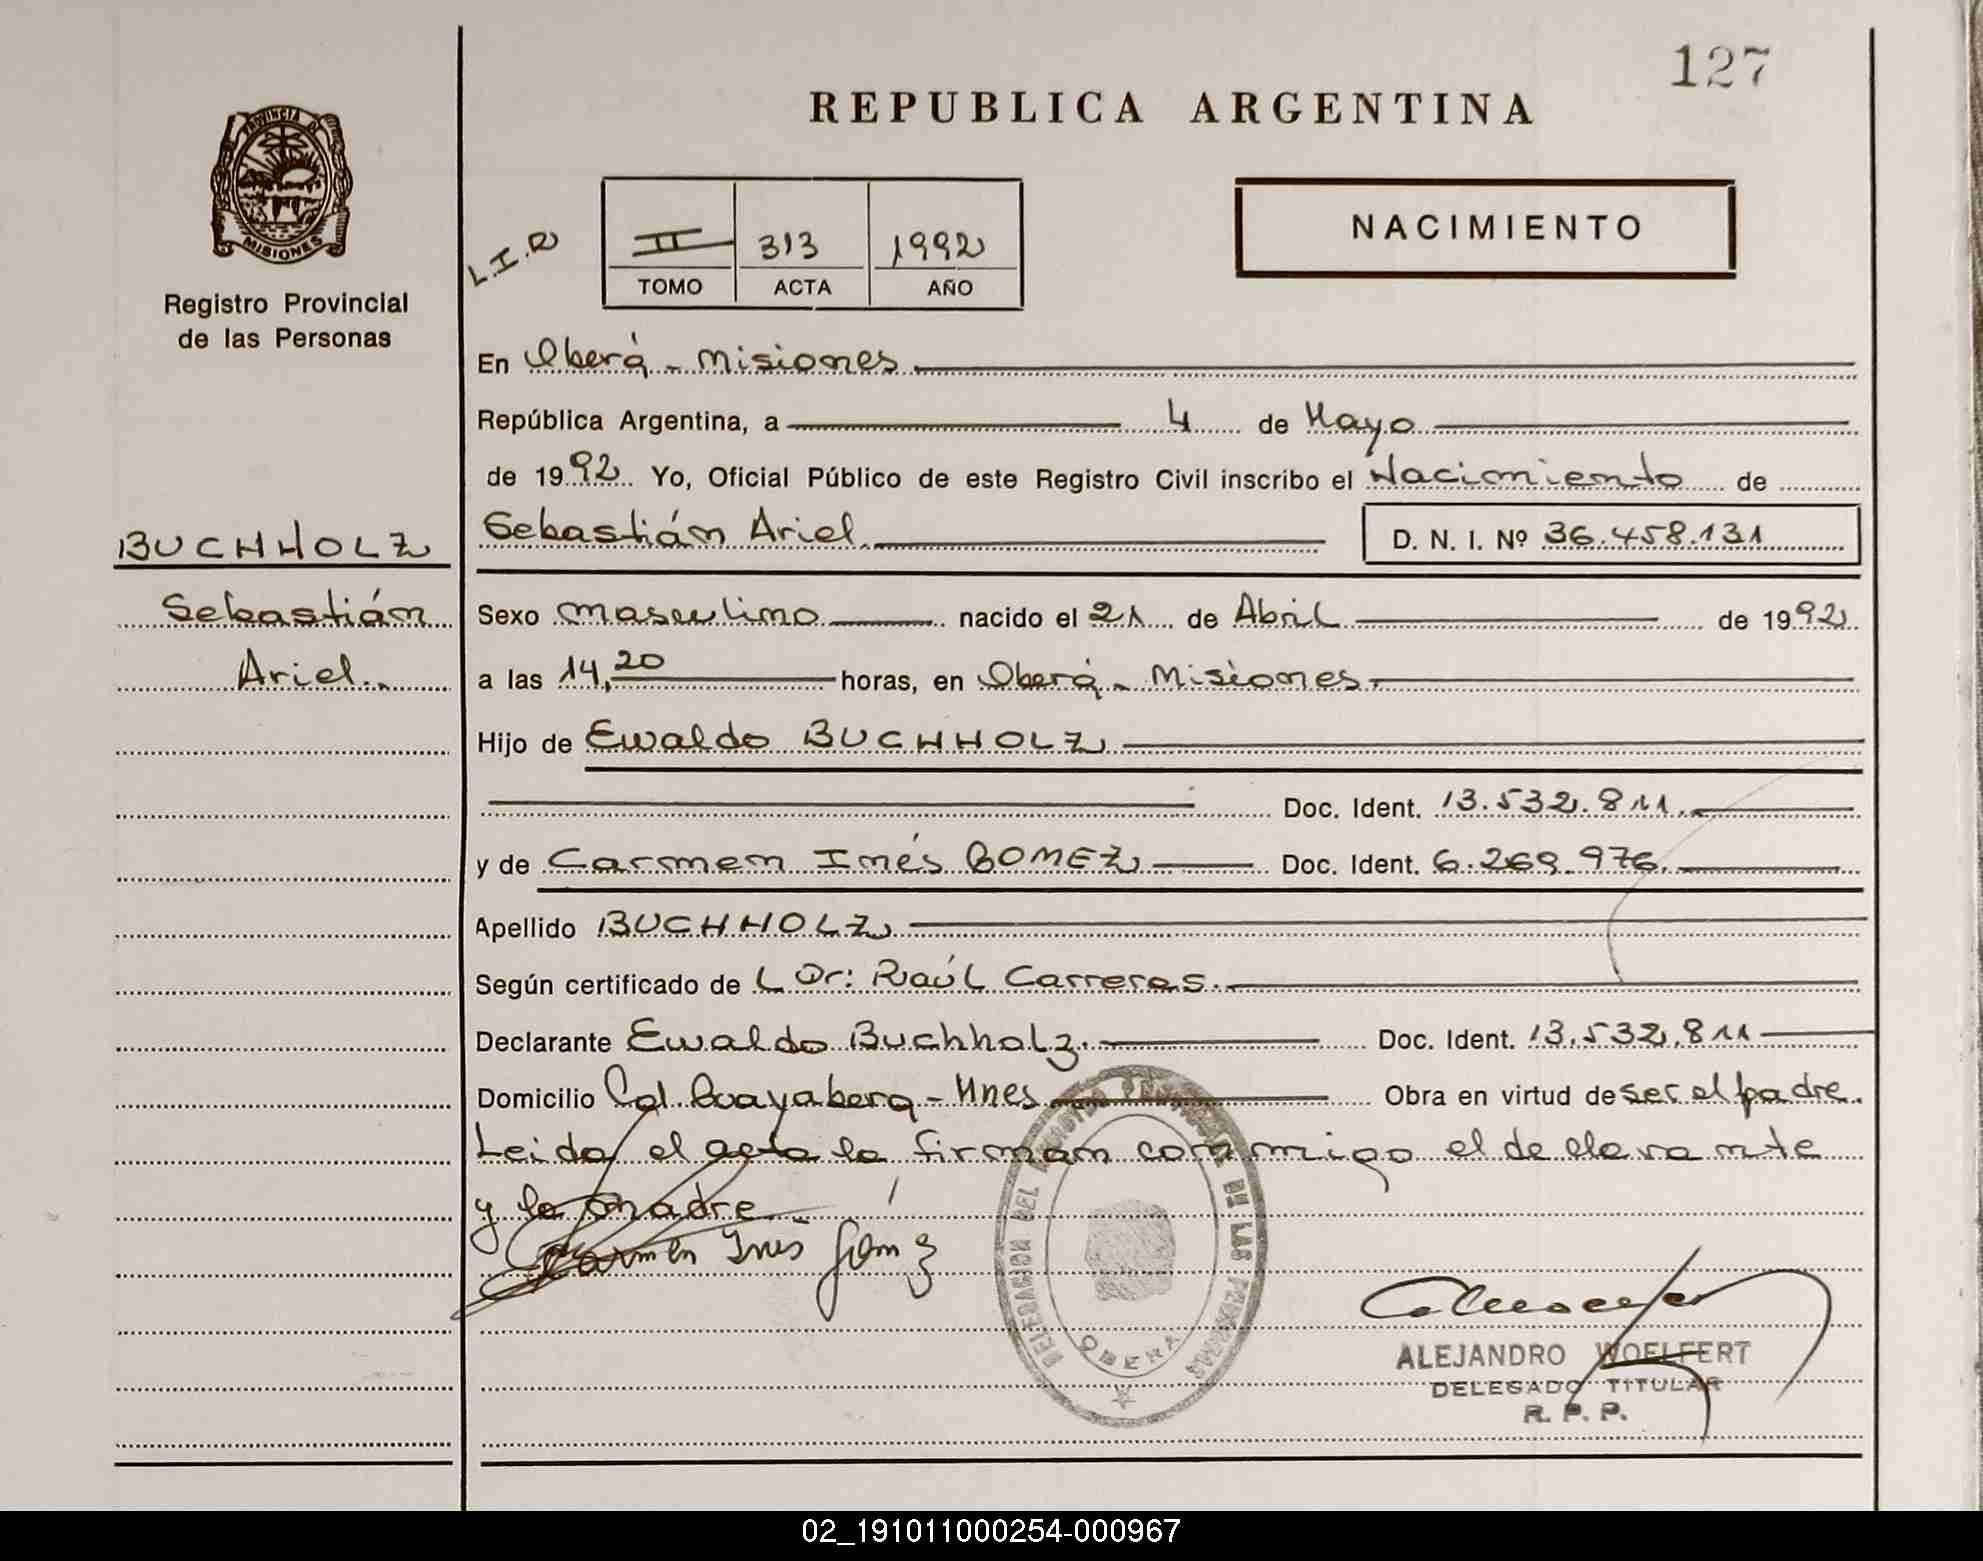 127
REPUBLICA ARGENTINA
PROVINCIA DE
MISIONES
Registro Provincial
de las Personas
L.I.R
II 313 1992
TOMO ACTA AÑO
NACIMIENTO
En Oberá - Misiones
República Argentina, a 4 de Mayo
de 1992 Yo, Oficial Público de este Registro Civil inscribo el Nacimiento de
BUCHHOLZ
Sebastián
Ariel.
Sebastián Ariel. D. N. I. Nº 36.458.131
Sexo masculino nacido el 21 de Abril de 1992
a las 14,20 horas, en Oberá - Misiones.
Hijo de Ewaldo BUCHHOLZ
Doc. Ident. 13.532.811.
y de Carmen Inés GOMEZ Doc. Ident. 6.269.976.
Apellido BUCHHOLZ
Según certificado de L Dr: Raúl Carreras.
Declarante Ewaldo Buchholz. Doc. Ident. 13.532.811
Domicilio Col Guayabera - Mnes Obra en virtud de ser el padre.
Leida el acta la firman conmigo el declarante
y la madre.
Carmen Ines Gomez
DELEGACION DEL REGISTRO PROVINCIAL DE LAS PERSONAS
OBERA
ALEJANDRO WOELFERT
DELEGADO TITULAR
R. P. P.
02_191011000254-000967